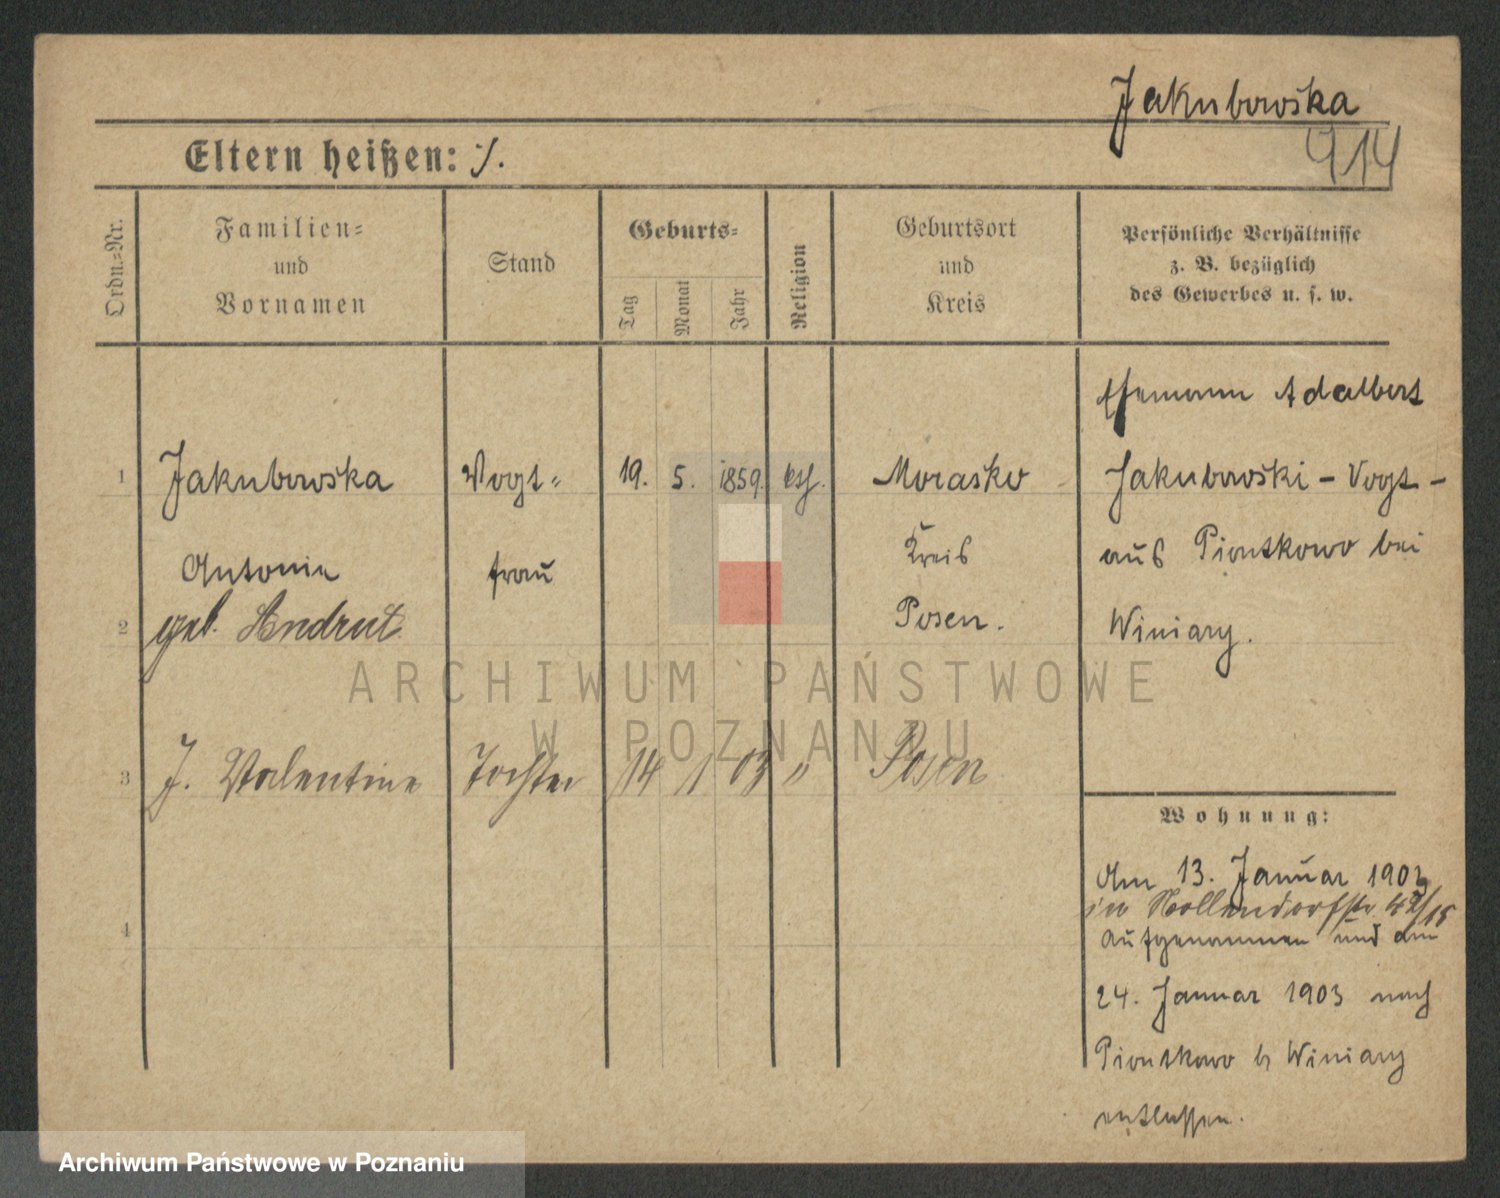 Jakubowska
914
Eltern heißen: ./.
Ordn.=Nr.
Familien=
und
Vornamen
Stand
Geburts=
Tag
Monat
Jahr
Religion
Geburtsort
und
Kreis
Persönliche Verhältnisse
z. B. bezüglich
des Gewerbes u. s. w.
Ehemann Adalbert
1 Jakubowska Vogt= 19. 5. 1859. kth. Morasko Jakubowski - Vogt -
Antonie frau Kreis aus Piontkowo bei
2 geb. Andrut Posen. Winiary.
ARCHIWUM PAŃSTWOWE
W POZNANIU
3 J. Valentine Tochter 14 1 03 " Posen
Wohnung:
Am 13. Januar 1903
in Nollendorfstr 42/15
4 aufgenommen und am
24. Januar 1903 nach
Piontkowo b Winiary
entlassen.
Archiwum Państwowe w Poznaniu